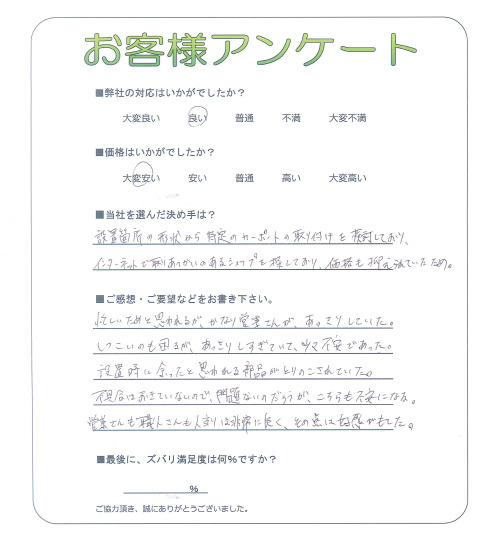 お客様アンケート
■弊社の対応はいかがでしたか？
大変良い 良い 普通 不満 大変不満
■価格はいかがでしたか？
大変安い 安い 普通 高い 大変高い
■当社を選んだ決め手は？
設置箇所の形状から特定のカーポートの取り付けを検討しており、
インターネットで取りあつかいのあるショップを探しており、価格も抑えられていたため。
■ご感想・ご要望などをお書き下さい。
忙しいためと思われるが、かなり営業さんが、あっさりしていた。
しつこいのも困るが、あっさりしすぎていて、少々不安であった。
設置時に余ったと思われる部品がとりのこされていた。
不具合はおきていないので、問題ないのだろうが、こちらも不安になる。
営業さんも職人さんも人当りは非常に良く、その点は好感がもてた。
■最後に、ズバリ満足度は何%ですか？
%
ご協力頂き、誠にありがとうございました。